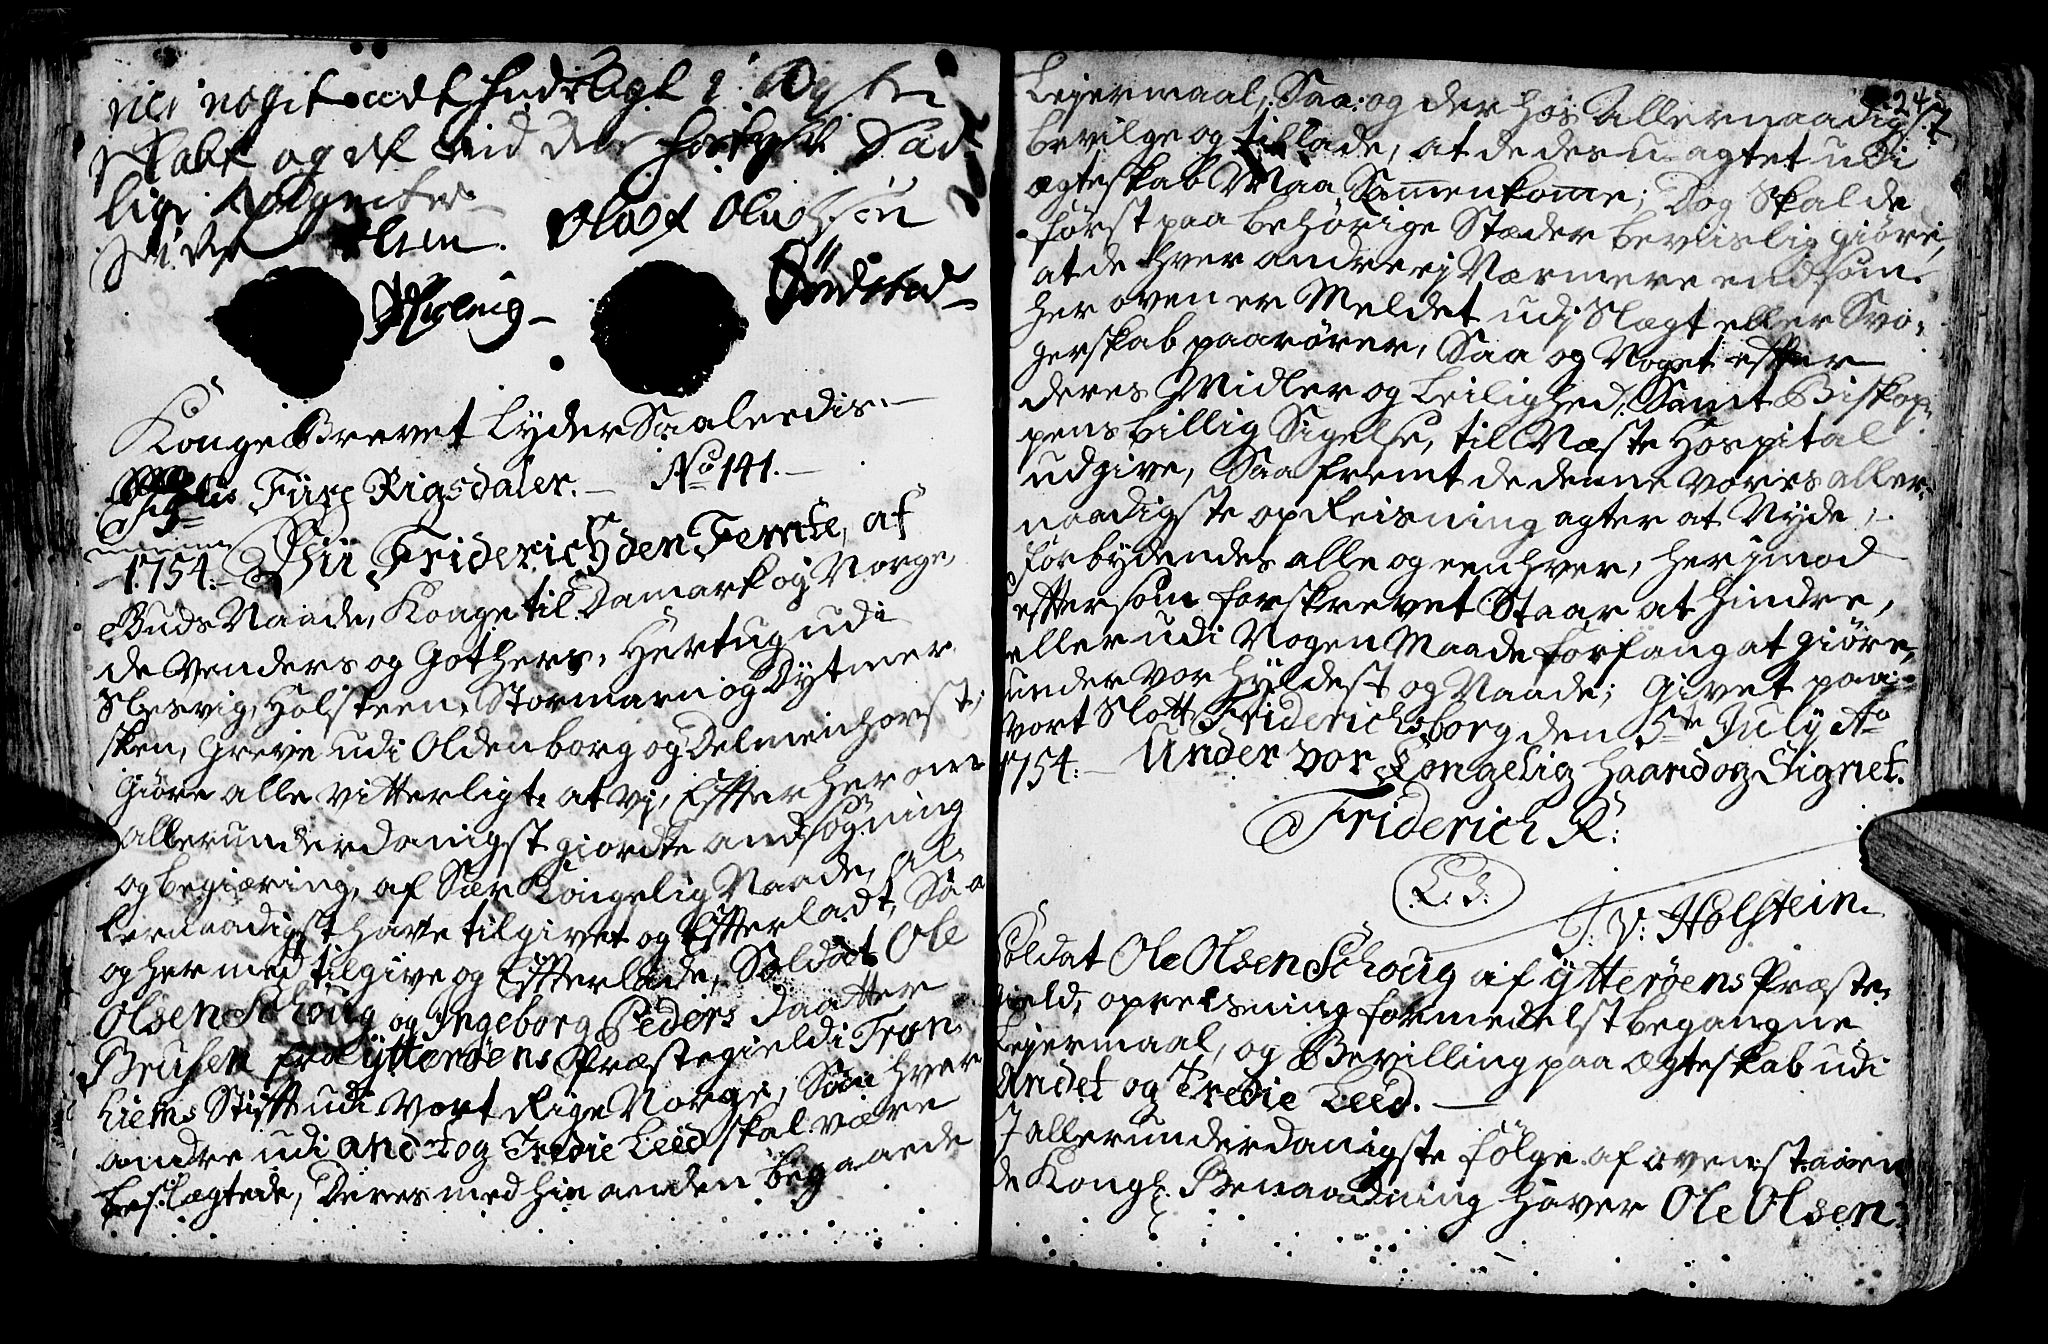 nes noget udi
skabt og at ved
lige
Olsen. Oluf Olufsøn
Sundstad
Konge Brevet Lÿder Saaledis.
Fiire Rigsdaler. No 141.
1754. Vii Friderich den Femte, af
Guds Naade, Konge til Danmark og Norge,
de Venders og Gothers, Hertug udi
Slesvig, Holsteen, Stormarn og Dytmer
sken, Greve udi Oldenborg og Delmenhorst;
Giøre alle vitterligt, at vj, Efter her om
allerunderdanigst giordte andsøgning
og begiæring, af Sær Kongelig Naade, al-
lernaadigst have tilgivet og Efterladt, Saa
og hermed tilgive og Efterlade, Soldat Ole
Olsen Schoug og Ingeborg Peders Daatter
fra Ytterøens Præstegield i Tron
hiems Stift udi Vort Rige Norge, Som hver
andre udi andet og Tredie Leed skal være
beslægtede, Deres med hin anden begaaede
24
Lejermaal, Saa og der hos Allernaadigst
bevilge og tillade, at de des uagtet udi
ægteskab Maa Sammenkomme; Dog Skal de
først paa behörige Stæder beviislig giøre,
at de hver andre ej Nærmere end som
her oven er Meldet udj Slægt eller Svo-
gerskab paarører, Saa og Noget efter
deres Midler og Leilighed, Samt Biskop-
pens billig Sigelse, til Næste Hospital
udgive, Saafremt de denne vores aller-
naadigste opreisning agter at Nyde,
Forbydendes alle og eenhver, herimod
eftersom forskrevet Staar at hindre,
eller udi Nogen Maade forfang at giøre,
under vor Hyldest og Naade; Givet paa
vort Slott Friderichsborg den 5te July Ao
1754. Under vor Kongelig Haand og Signet.
Friderich R.
L. S.
J. V. Holstein
Soldat Ole Olsen Schoug af Ytterøens Præste-
gield, opreisning formedelst begangne
Lejermaal, og Bevilling paa Ægteskab udi
Andet og Tredie Leed.
I allerunderdanigste følge af ovenstaaen
de Kongl. Benaadning haver Ole Olsen